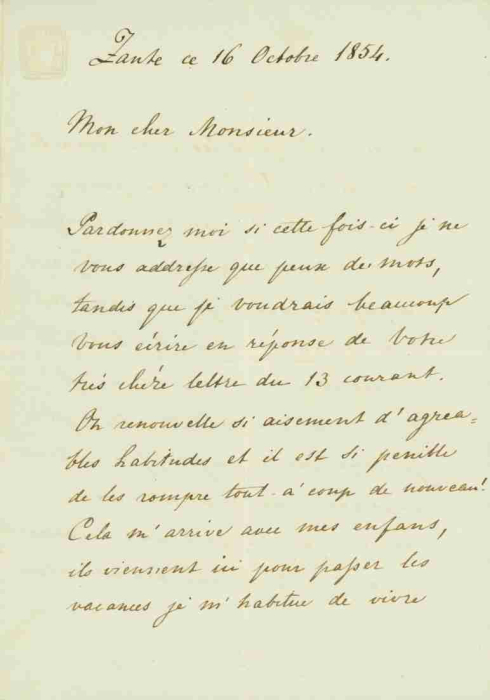 Zante ce 16 Octobre 1854.
Mon cher Monsieur.
Pardonnez moi si cette fois-ci je ne
vous addresse que peux de mots,
tandis que je voudrais beaucoup
vous écrire en réponse de Votre
très chére lettre du 13 courant.
On renouvelle si aisement d'agrea=
bles habitudes et il est si penible
de les rompre tout-à-coup de nouveau!
Cela m'arrive avec mes enfans,
ils viennent ici pour passer les
vacances je m'habitue de vivre